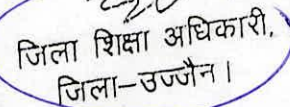 जिला शिक्षा अधिकारी,
जिला–उज्जैन।